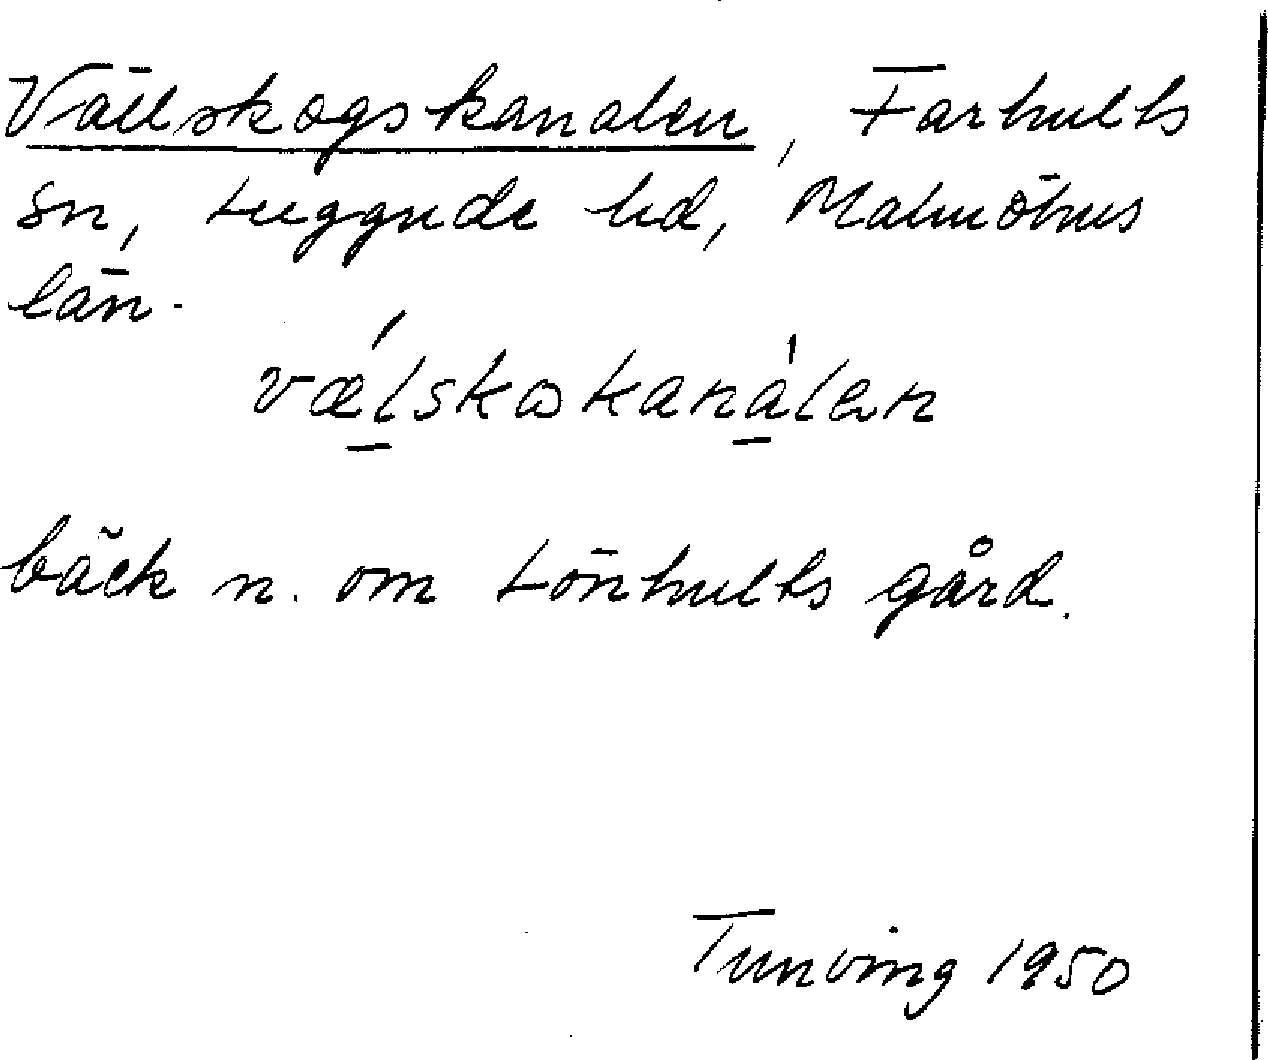 Vällskogskanalen, Farhults
sn, Luggude hd, Malmöhus
län.
vǽ̱lskωkana̱̍lən
bäck n. om Lönhults gård.
Tunving 1950